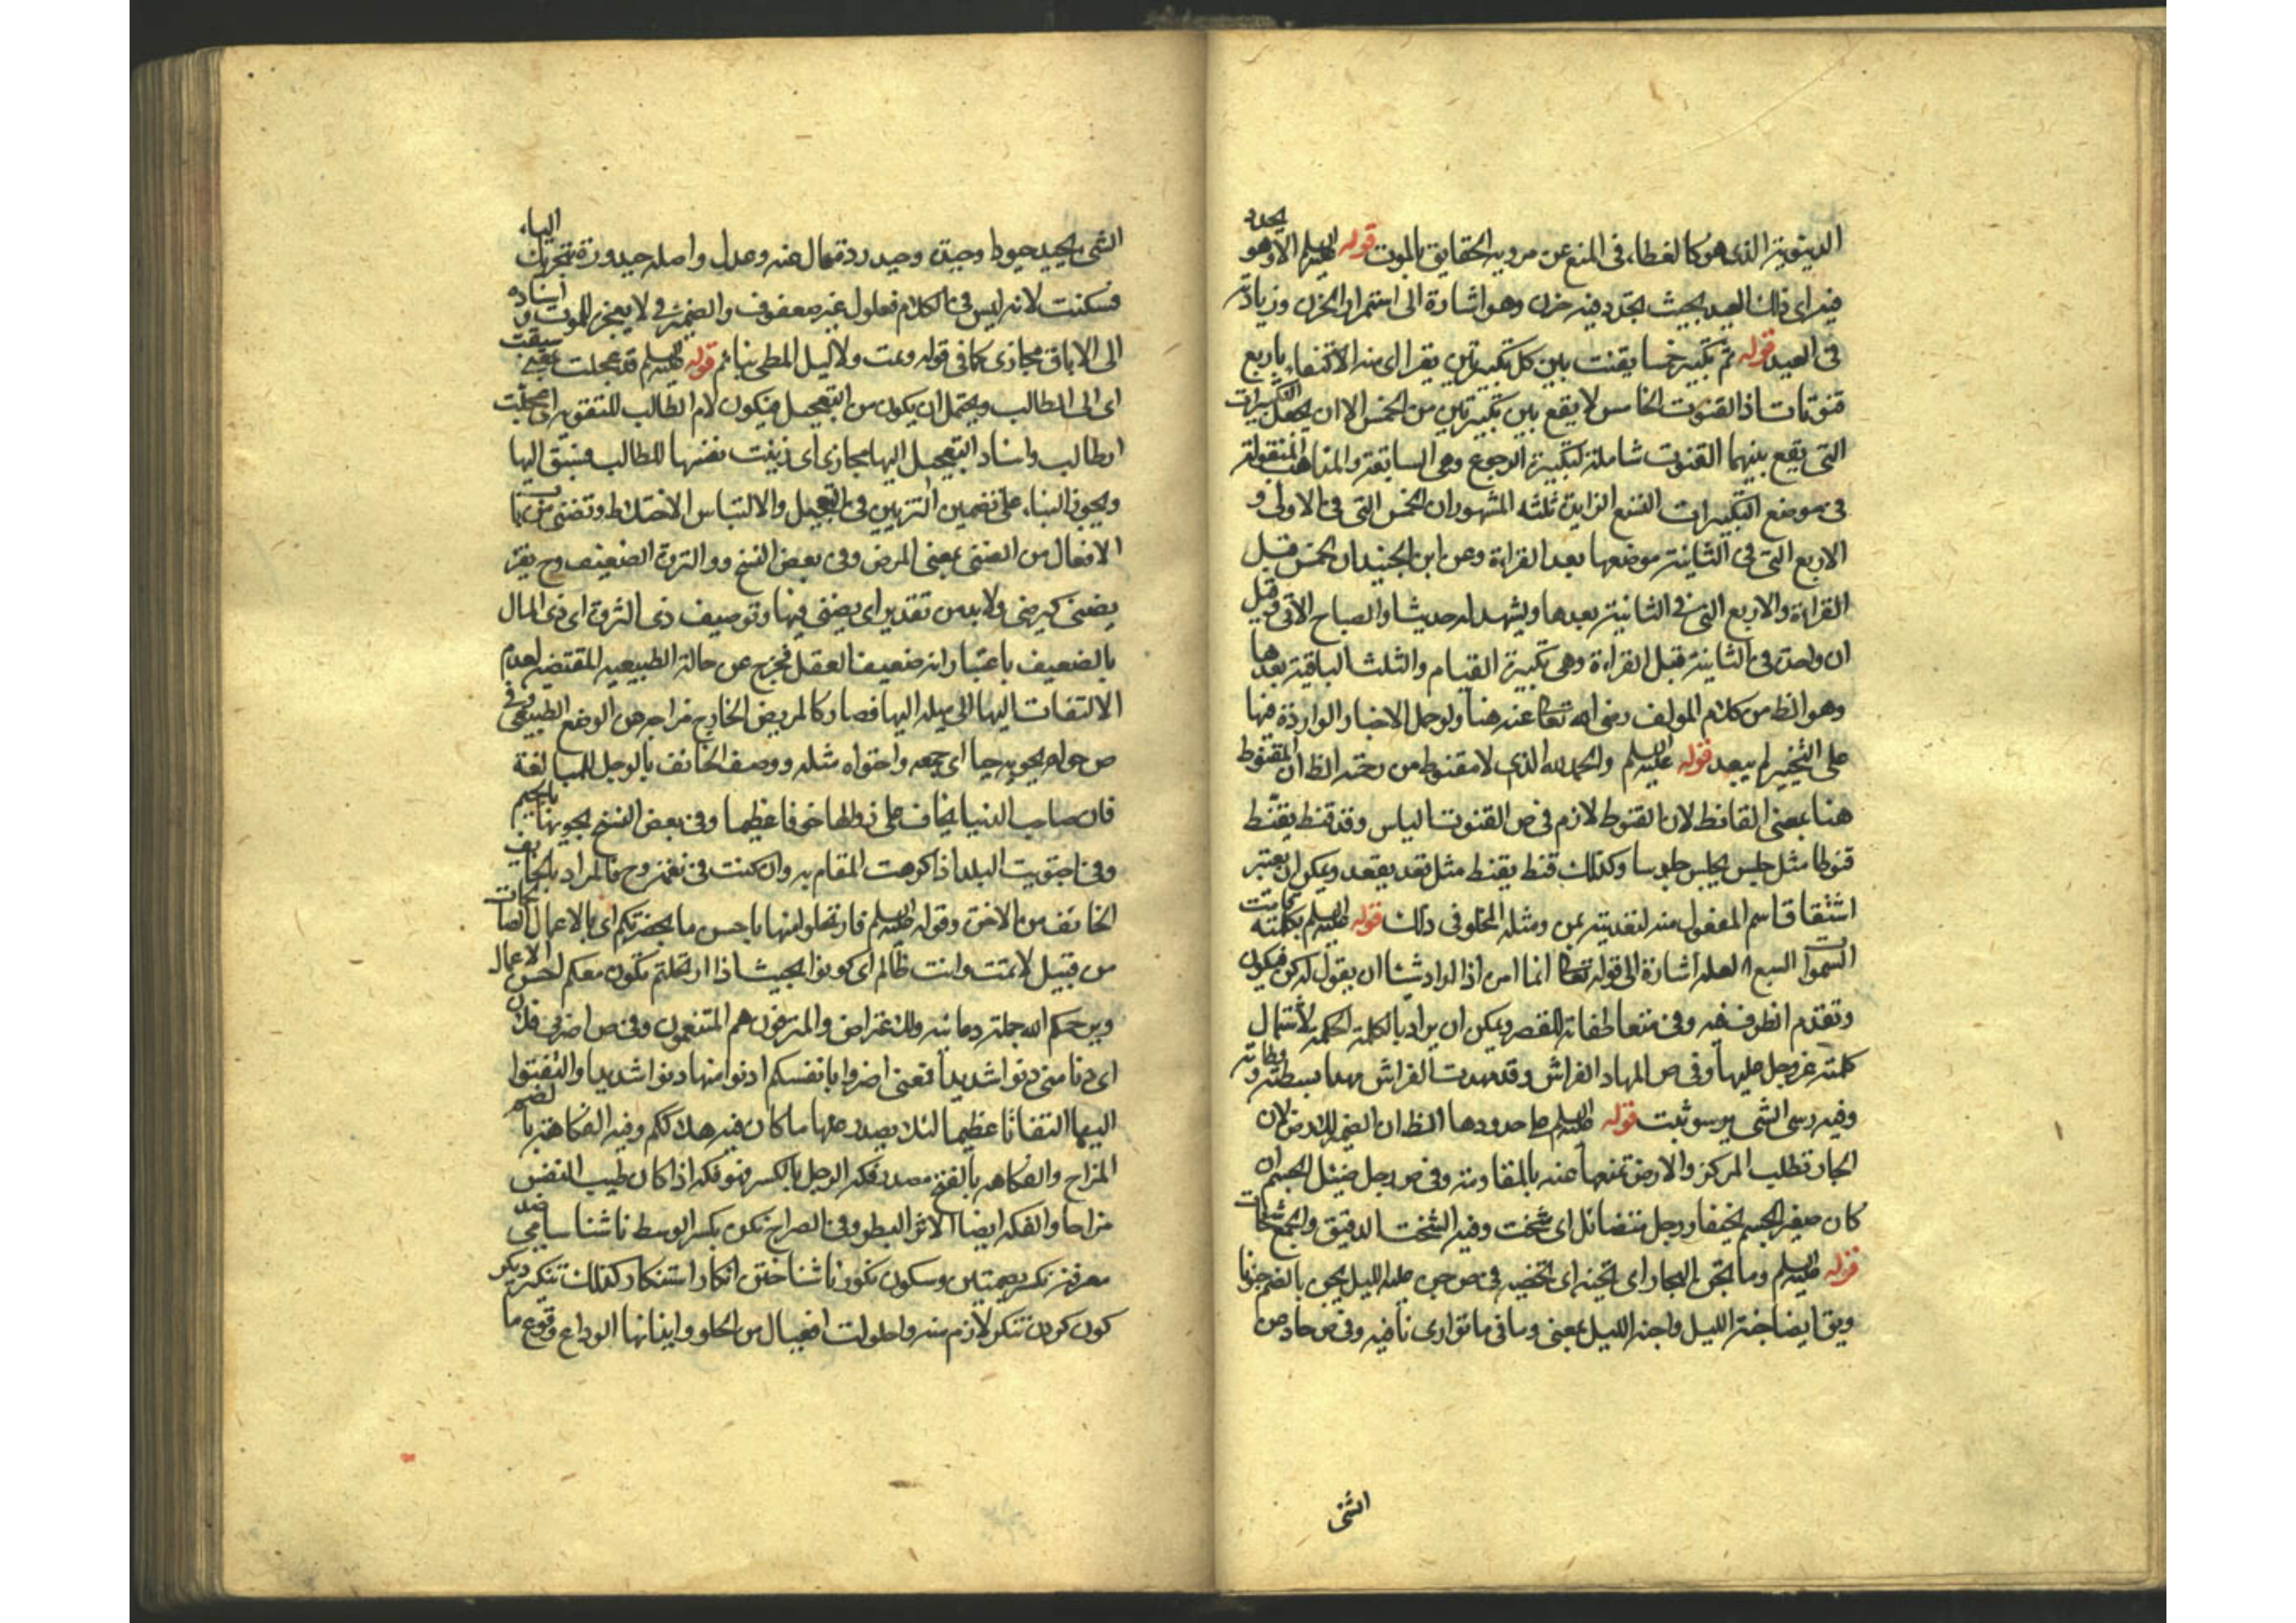 الدنيوية الذى هو كالغطاء فى المنع عن روية الحقايق بالموت قوله عليه السلم الا وهو يجدد
فيه اى ذلك العيد بحيث يجدد فيه حزن وهو اشارة الى استمرار الحزن وزيادته
فى العيد قوله ثم تكبير خمسا يقنت بين كل تكبيرتين يقرا اى منه الاكتفاء باربع
قنوتات اذ القنوت الخامس لا يقع بين تكبيرتين من الخمس الا ان يجعل التكبيرات
التى يقع بينهما القنوت شاملة لتكبيرة الركوع وهى السابقة والمذاهب المنقولة
فى موضع التكبيرات التسع الزايدة ثلثه المشهور ان الخمس التى فى الاولى و
الاربع التى فى الثانية موضعها بعد القراءة وعن ابن الجنيد ان الخمس قبل
القراءة والاربع التى فى الثانية بعدها ويشهد له حديثا والصباح الآتى وقيل
ان واحدة فى الثانية قبل القراءة وهى تكبيرة القيام والثلث الباقية بعدها
وهو الظ من كلام المولف رضى الله تعالى عنه هنا ولو حمل الاخبار الواردة فيها
على التخيير لم يبعد قوله عليه السلم والحمد لله الذى لا مقنوط من رحمته الظ ان المقنوط
هنا بمعنى القانط لان القنوط لازم فى ص القنوت الياس وقد قنط يقنط
قنوطا مثل جلس يجلس جلوسا وكذلك قنط يقنط مثل قعد يقعد ويمكن ان يعتبر
اشتقاق اسم المفعول منه لتعديته بمن ومثله المخلو فى ذلك قوله عليه السلم بكلمته قامت
السموات السبع لعله اشارة الى قوله تعالى انما امره اذا اراد شيئا ان يقول له كن فيكون
وتقدم الظرف فيه وفى متعاطفاته للقصر ويمكن ان يراد بالكلمة الحكمة لاشتمال
كلمته عز وجل عليها وفى ص المهاد الفراش وقد مهدت الفراش مهدا بسطته ووطاته
وفيه رسى الشى يرسو ثبت قوله عليه السلم على حدودها الظ ان الضمير للارض لان
البحار تطلب المركز والارض تمنعها عنه بالمقاومة وفى ص رجل ضئيل الجسم ان
كان صغير الجسم نحيفا ورجل متضائل اى شخت وفيه الشخت الدقيق والجمع شخات
قوله عليه السلم وما تجن البحار اى تجنه اى تخفيه فى ص جن عليه الليل يجن بالضم جنونا
ويق ايضا جنه الليل واجنه الليل بمعنى وما فى ما توارى نافيه وفى ص حاد عن
الشى
الشى يحيد حيودا وحيدة وحيدودة مال عنه وعدل واصله حيدودة بتحريك الياء
فسكنت لانه ليس فى الكلام فعلول غير صعفوق والضمير فى لا يعجزه للموت واسناده
الى الاباق مجازى كما فى قوله ونمت ولا ليل المطى بنائم قوله عليه السلم قد عجلت بمعنى سبقت
اى الى الطالب ويحتمل ان يكون من التعجيل فيكون لام الطالب للتقوية اى عجلت
الطالب واسناد التعجيل اليها مجازى اى زينت نفسها للطالب فسبق اليها
ويجوز البناء على تضمين التزيين فى التعجيل والالتباس الاختلاط وتضنى من باب
الافعال من الضنى بمعنى المرض وفى بعض النسخ ذو الثروة الضعيف وح يقر
يضنى كيرضى ولا بد من تقدير اى يضنى فيها وتوصيف ذى الثروة اى ذى المال
بالضعيف باعتبار انه ضعيف العقل فخرج عن حالته الطبيعيه المقتضيه لعدم
الالتفات اليها الى ميله اليها فصار كالمريض الخارج مزاجه عن الوضع الطبيعى وفى
ص حواه يحويه حيا اى جمعه واحتواه مثله ووصف الخائف بالوجل للمبالغة
فان صاحب الدنيا يخاف على زوالها خوفا عظيما وفى بعض النسخ يجويها بالجيم
وفى اجتويت البلد اذا كرهت المقام به وان كنت فى نعمة وح فالمراد بالخايف
الخائف من الاخرة وقوله عليه السلم فارتحلوا منها باحسن ما بحضرتكم اى بالاعمال الصالحات
من قبيل لا تمت وانت ظالم اى كونوا بحيث اذا ارتحلتم تكون معكم احسن الاعمال
ويرحمكم الله جملة دعائيه والمترفون هم المتنعمون وفى ص اضر بى فلان
اى دنا منى دنوا شديدا فمعنى اضروا بانفسكم ادنوا منها دنوا شديدا والتفتوا
اليها التفاتا عظيما لئلا يصدر عنها ما كان فيه هلاككم وفيه الفكاهة بالضم
المزاح والفكاهه بالفتح مصدر فكه الرجل بالكسر فهو فكه اذا كان طيب النفس
مزاحا والفكه ايضا الاشر البطر وفى الصراح نكره بكسر الوسط ناشناسايى ضد
معرفة نكر بضمتين وسكون نكور ناشناختن انكار استنكار كذلك تنكير ديكر
كون كردن تنكر لازم منه واحلولت افعيعال من الحلو وايذانها الوداع وقوع ما